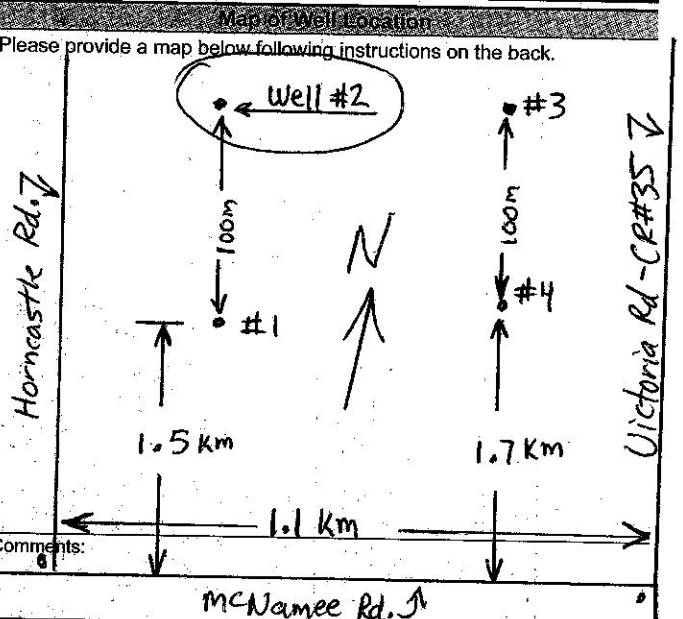 Map of Well Location
Please provide a map below following instructions on the back.
Well #2
#3
Horncastle Rd.
100m
N
100m
Victoria Rd-CR#35
#4
#1
1.5 Km
1.7 Km
1.1 Km
Comments:
McNamee Rd.